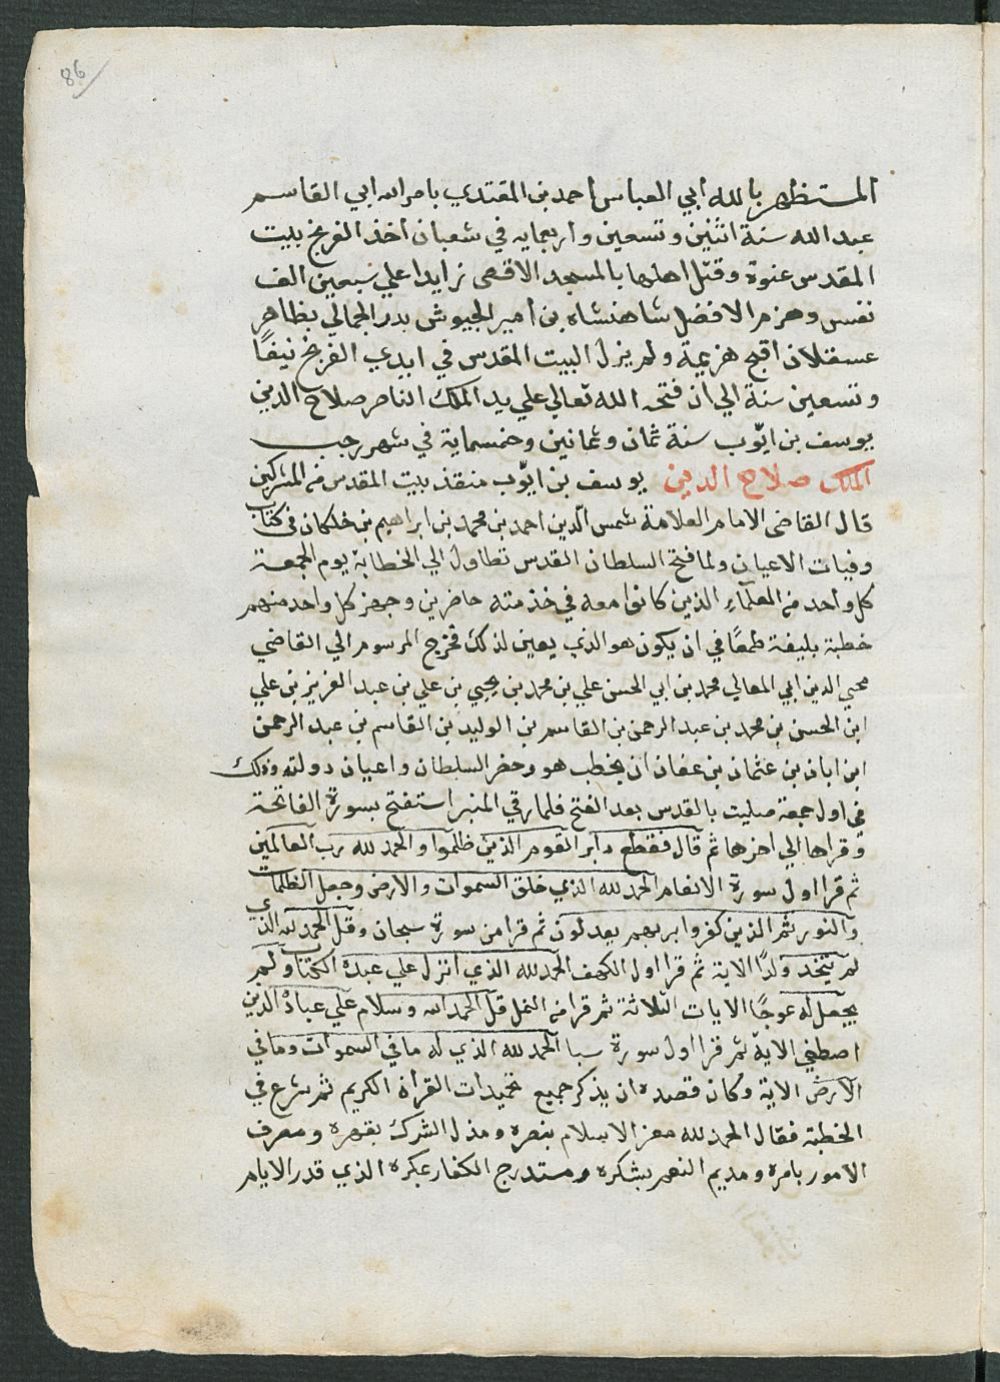 86
المستظهر بالله ابي العباس احمد بن المقتدي بامر الله ابي القاسم
عبد الله سنة اثنين وتسعين واربعمايه في شعبان اخذ الفرنج بيت
المقدس عنوة وقتل اهلها بالمسجد الاقصى زايدا علي سبعين الف
نفس وهزم الافضل شاهنشاه بن امير الجيوش بدر الجمالي بظاهر
عسقلان اقبح هزيمة ولم يزل البيت المقدس في ايدي الفرنج نيفاً
وتسعين سنة الي ان فتحه الله تعالي علي يد الملك الناصر صلاح الدين
يوسف بن ايّوب سنة ثمان وثمانين وخمسماية في شهر رجب
الملك صلاح الدين يوسف بن ايّوب منقذ بيت المقدس من المشركين
قال القاضي الامام العلامة شمس الدين احمد بن محمد بن ابراهيم بن خلكان في كتاب
وفيات الاعيان ولما فتح السلطان القدس تطاول الي الخطابة يوم الجمعة
كل واحد من العلماء الذين كانوا معه في خذمته حاضرين وجهز كل واحد منهم
خطبة بليغة طمعًا في ان يكون هو الذي يعين لذلك فخرج المرسوم الي القاضي
محيي الدين ابي المعالي محمد بن ابي الحسن علي بن محمد بن يحيي بن علي بن عبد العزيز بن علي
ابن الحسن بن محمد بن عبد الرحمن بن القاسم بن الوليد بن القاسم بن عبد الرحمن
ابن ابان بن عثمان بن عفان ان يخطب هو وحضر السلطان واعيان دولته وذلك
في اول جمعة صليت بالقدس بعد الفتح فلما رقي المنبر استفتح بسورة الفاتحة
وقراها الي اخرها ثم قال فقطع دابر القوم الذين ظلموا والحمد لله رب العالمين
ثم قرا اول سورة الانعام الحمد لله الذي خلق السموات والارض وجعل الظلمات
والنور ثم الذين كفروا بربهم يعدلون ثم قرا من سورة سبحان وقل الحمد لله الذي
لم يتخذ ولدًا الاية ثم قرا اول الكهف الحمد لله الذي انزل علي عبده الكتاب ولم
يجعل له عوجًا الايات الثلاثة ثم قرا من النمل قل الحمد لله وسلام علي عباده الذين
اصطفي الاية ثم قرا اول سورة سبا الحمد لله الذي له ما في السموات وما في
الارض الاية وكان قصده ان يذكر جميع تحميدات القران الكريم ثم شرع في
الخطبة فقال الحمد لله معز الاسلام بنصره ومذل الشرك بقهره ومصرف
الامور بامره ومديم النعم بشكره ومستدرج الكفار بمكره الذي قدر الايام